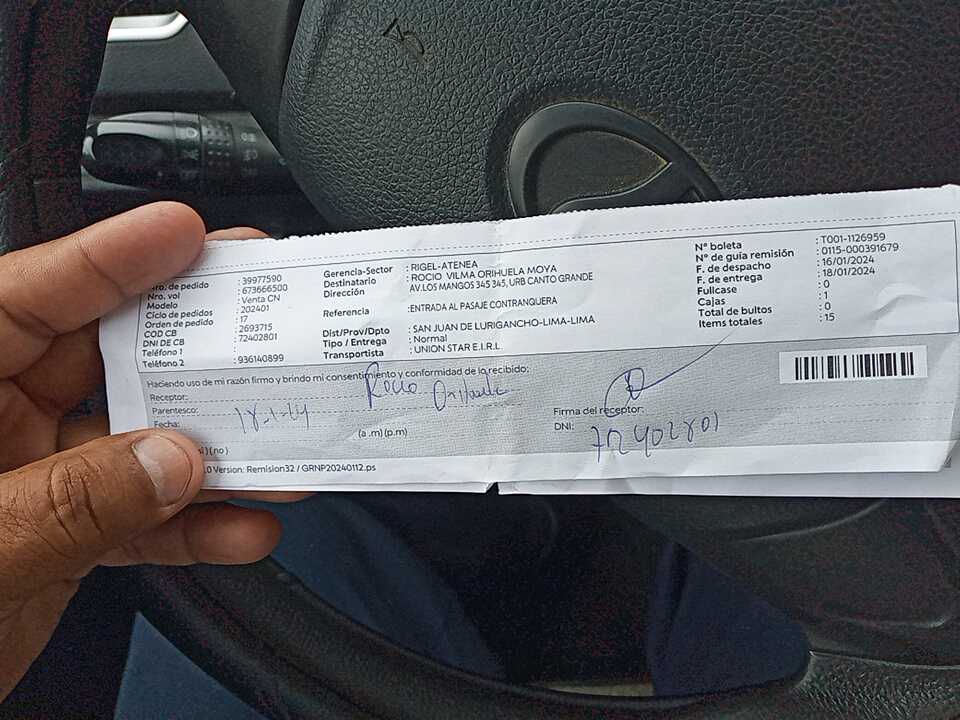 Nro. de pedido : 39977590
Nro. vol : 673666500
Modelo : Venta CN
Ciclo de pedidos : 202401
Orden de pedido : 17
COD CB : 2693715
DNI DE CB : 72402801
Teléfono 1 :
Teléfono 2 : 936140899
Gerencia-Sector : RIGEL-ATENEA
Destinatario : ROCIO VILMA ORIHUELA MOYA
Dirección AV.LOS MANGOS 345 345, URB CANTO GRANDE
Referencia :ENTRADA AL PASAJE CONTRANQUERA
Dist/Prov/Dpto : SAN JUAN DE LURIGANCHO-LIMA-LIMA
Tipo / Entrega : Normal
Transportista : UNION STAR E.I.R.L
N° boleta : T001-1126959
N° de guía remisión : 0115-000391679
F. de despacho : 16/01/2024
F. de entrega : 18/01/2024
Fullcase : 0
Cajas : 1
Total de bultos : 0
Items totales : 15
Haciendo uso de mi razón firmo y brindo mi consentimiento y conformidad de lo recibido:
Receptor: Rocio Orihuela
Parentesco:
Fecha: 18-1-24
(a .m) (p.m)
Firma del receptor:
DNI: 72402801
) (no )
.0 Version: Remision32 / GRNP20240112.ps